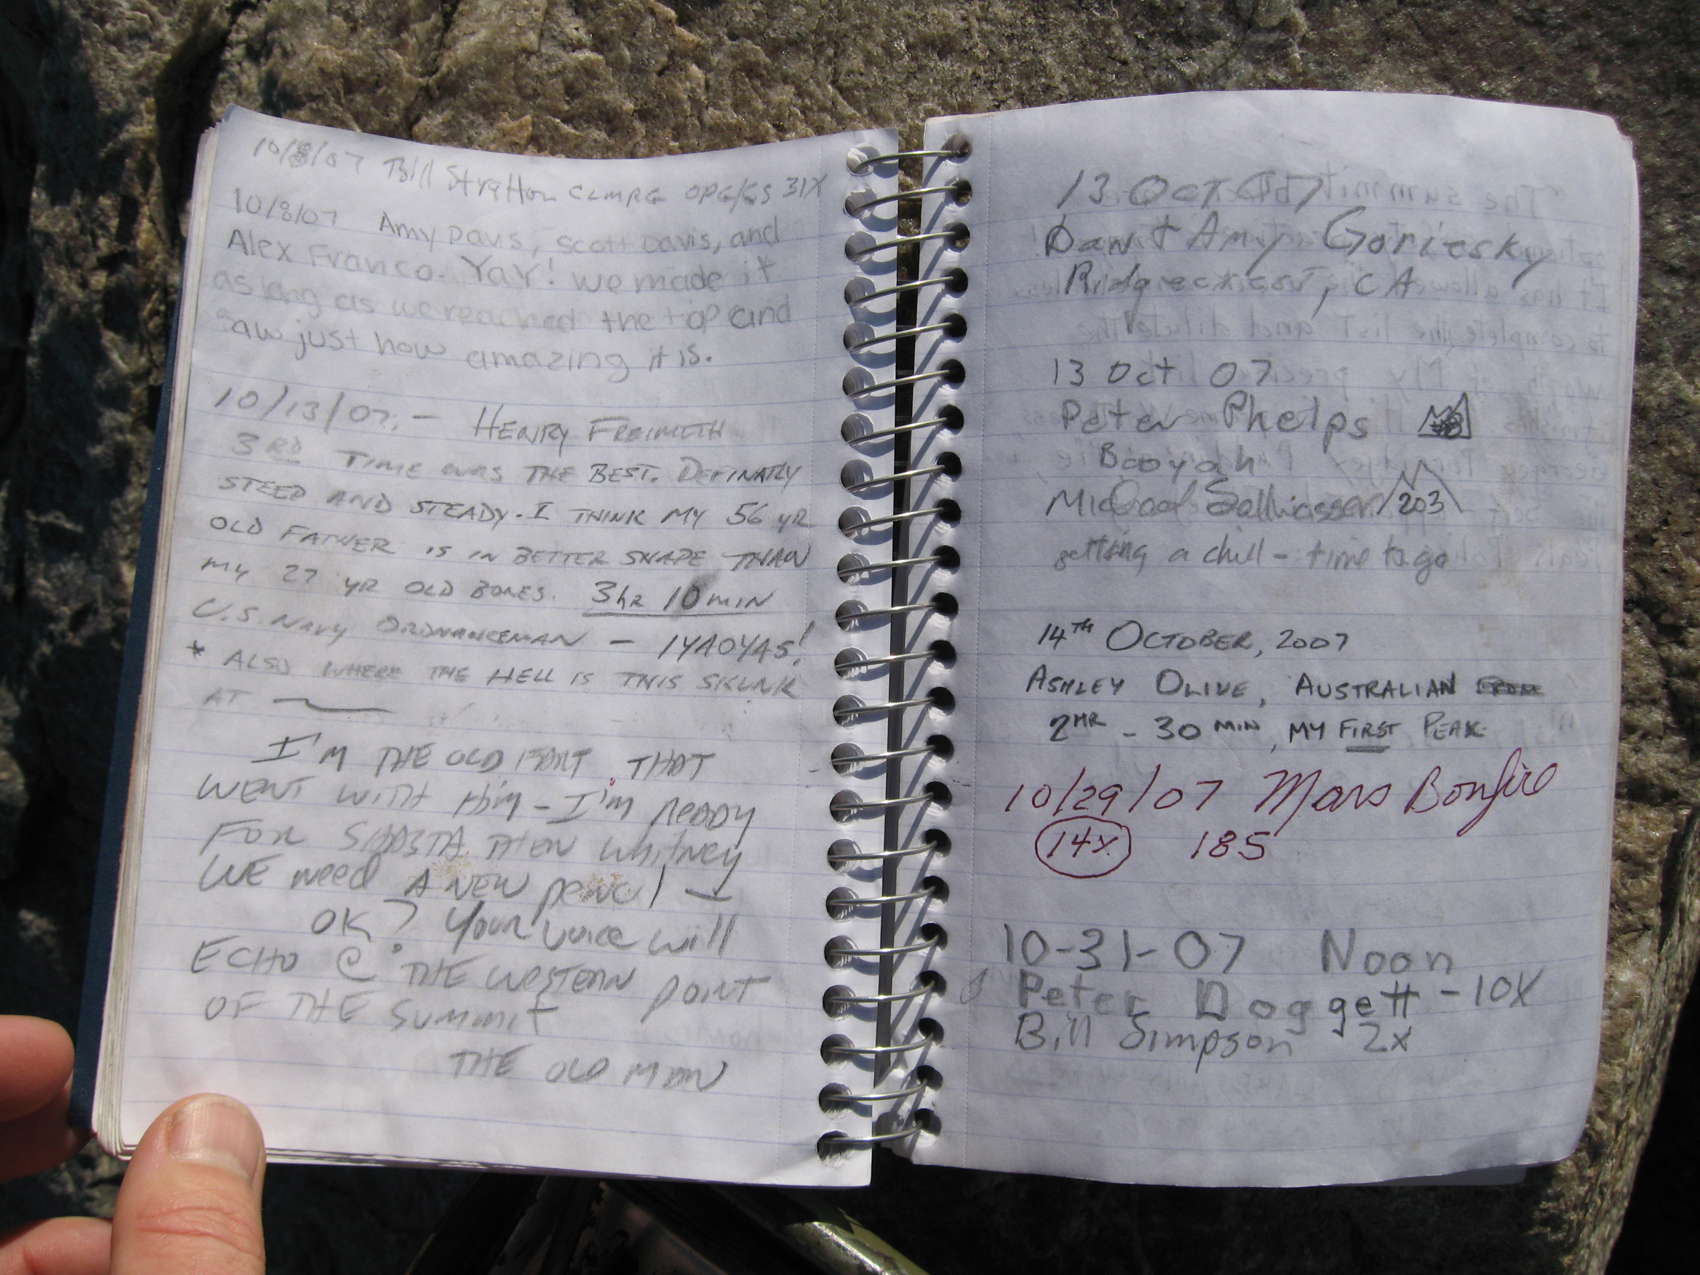 10/8/07 Bill Stratton CLMRG OPG/GS 31X
10/8/07 Amy Davis, Scott Davis, and
Alex Franco. Yay! We made it
as long as we reached the top and
saw just how amazing it is.
10/13/07. - HENRY FREIMUTH
3RD TIME WAS THE BEST. DEFINATLY
STEED AND STEADY. I THINK MY 56 YR
OLD FATHER IS IN BETTER SHAPE THAN
MY 27 YR OLD BONES. 3HR 10 MIN
U.S. NAVY ORDNANCEMAN - IYAOYAS!
* ALSO WHERE THE HELL IS THIS SKUNK
AT
I'M THE OLD THAT
WENT WITH HIM - I'M READY
FOR SHASTA THEN WHITNEY
WE need A NEW pencil -
OK? Your voice will
ECHO @ THE WESTERN POINT
OF THE SUMMIT
THE OLD MAN
13 Oct 07
Dan + Amy Goriesky
Ridgecrest, CA
13 Oct 07
Peter Phelps
Booyah
Michael 203
getting a chill - time to go
14TH OCTOBER, 2007
ASHLEY OLIVE, AUSTRALIAN
2HR - 30 MIN, MY FIRST PEAK
10/29/07 Mars Bonfire
14X 185
10-31-07 Noon
Peter Doggett - 10X
Bill Simpson 2x